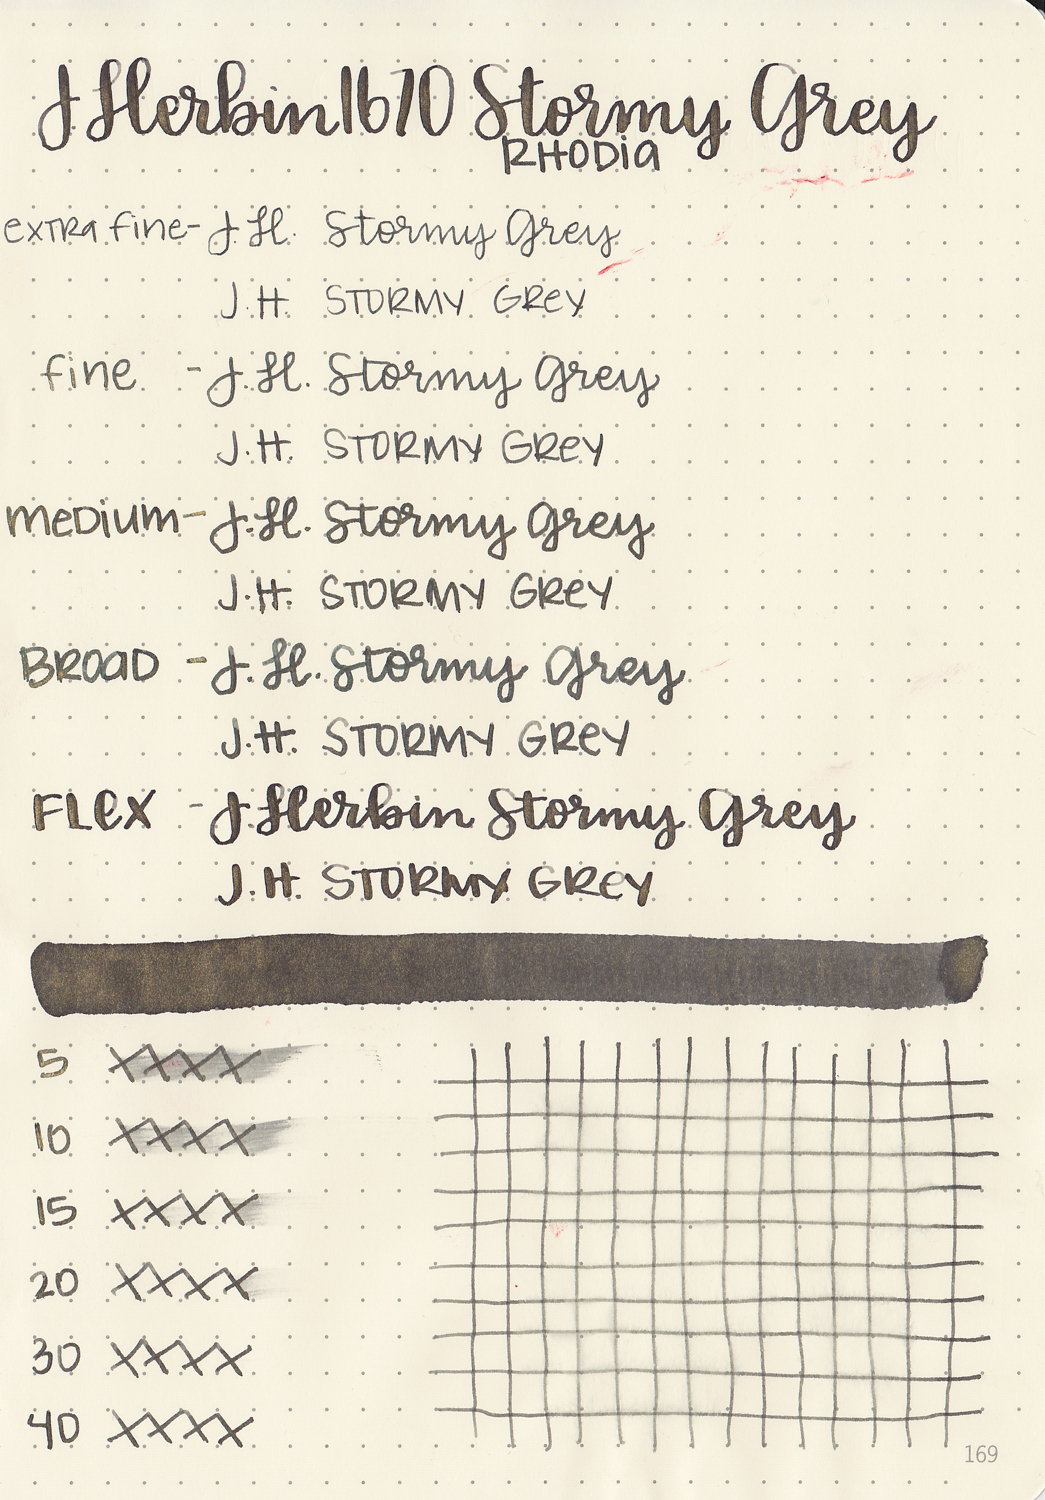 J Herbin 1670 Stormy Grey
RHODIA
extra fine - J.H. Stormy Grey
J.H. STORMY GREY
fine - J.H. Stormy Grey
J.H. STORMY GREY
medium - J.H. Stormy Grey
J.H. STORMY GREY
BROAD - J.H. Stormy Grey
J.H. STORMY GREY
FLEX - J Herbin Stormy Grey
J.H. STORMY GREY
5 XXXX
10 XXXX
15 XXXX
20 XXXX
30 XXXX
40 XXXX
169